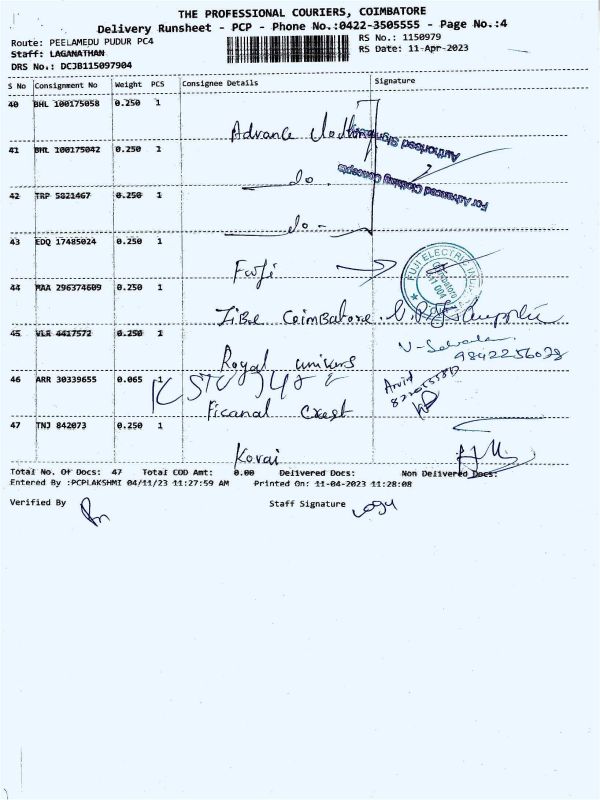 THE PROFESSIONAL COURIERS, COIMBATORE
Delivery Runsheet - PCP - Phone No.:0422-3505555 - Page No.:4
Route: PEELAMEDU PUDUR PC4 RS No.: 1150979
Staff: LAGANATHAN RS Date: 11-Apr-2023
DRS No.: DCJB115097904
S No Consignment No Weight PCS Consignee Details Signature
40 BHL 100175058 0.250 1
Advance
Authorised
41 BHL 100175042 0.250 1
do.
For Advanced Clothing Concepts
42 TRP 5821467 0.250 1
do -
43 EDQ 17485024 0.250 1
Fuji
FUJI ELECTRIC
Coimbatore
44 MAA 296374609 0.250 1
Coimbatore.
45 VLR 4417572 0.250 1
9842256028
Royal
46 ARR 30339655 0.065 1
Arvid
47 TNJ 842073 0.250 1
Kovai
Total No. Of Docs: 47 Total COD Amt: 0.00 Delivered Docs: Non Delivered Docs:
Entered By :PCPLAKSHMI 04/11/23 11:27:59 AM Printed On: 11-04-2023 11:28:08
Verified By Staff Signature